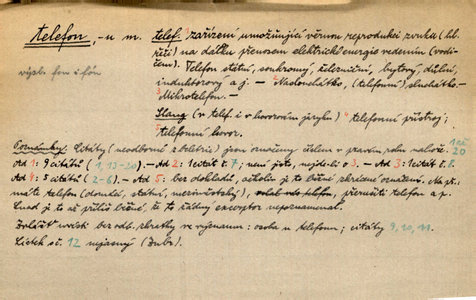 telefon, -u m. telef. 1 zařízení umožňující věrnou reprodukci zvuků (
řeči) na dálku přenosem elektrické energie vedením (vodi-
čem). Telefon státní, soukromý, železniční, bytový, důlní,
výsl. fon i fón
induktorový a j. – 2 Naslouchátko, (telefonní) sluchátko. –
3 Mikrotelefon. –
Slang (v telef. i v hovorovém jazyku) 4 telefonní přístroj;
5 telefonní hovor.
Poznámky. Citáty (neodborné z beletrie) jsou označeny číslem v pravém rohu nahoře. 1 až 20
Ad 1: 9 citátů (1, 13-20). – Ad 2: 1 citát č. 7; není jisté, nejde-li o 3. – Ad 3: 1 citát č. 8.
Ad 4: 5 citátů (2-6). – Ad 5: bez dokladů, ačkoliv je to běžné zkrácené označení. Na př.
máte telefon (domácí, státní, meziměstský), volal vás telefon, přerušiti telefon a p.
Snad je to až příliš běžné, že to žádný excerptor nepoznamenal.
Zvláště uvésti bez odb. zkratky ve významu: osoba u telefonu; citáty 9, 10, 11.
Lístek č. 12 nejasný (Zubr.).